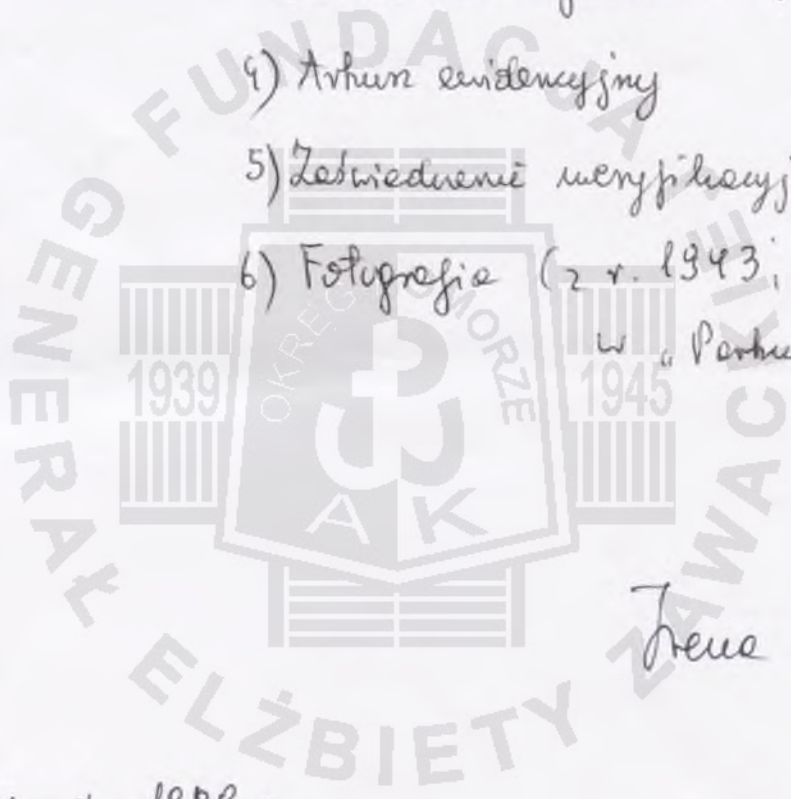 4) Arkusz ewidencyjny
5) Zaświadczenie weryfikacyj
6) Fotografia (z r. 1943;
w "
Irena
FUNDACJA
GENERAŁ ELŻBIETY ZAWACKIEJ
OKRĘG POMORZE
1939
1945
AK